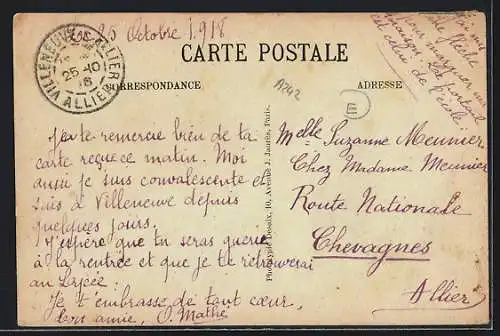 Le 25 Octobre 1918
CARTE POSTALE
CORRESPONDANCE
ADRESSE
VILLENEUVE-S-ALLIER
25-10
18
ALLIER
A242
E
Je te remercie bien de ta
carte reçue ce matin. Moi
aussi je suis convalescente et
suis à Villeneuve depuis
quelques jours.
J'espère que tu seras guérie
à la rentrée et que je te retrouverai
au Lycée.
Je t'embrasse de tout cœur,
ton amie, O. Mathé
Phototypie Desaix, 10, Avenue J. Jaurès, Paris.
Melle Suzanne Meunier
Chez Madame Meunier
Route Nationale
Chevagnes
Allier
flèche
pour marquer un
Le portail
est celui de l'école